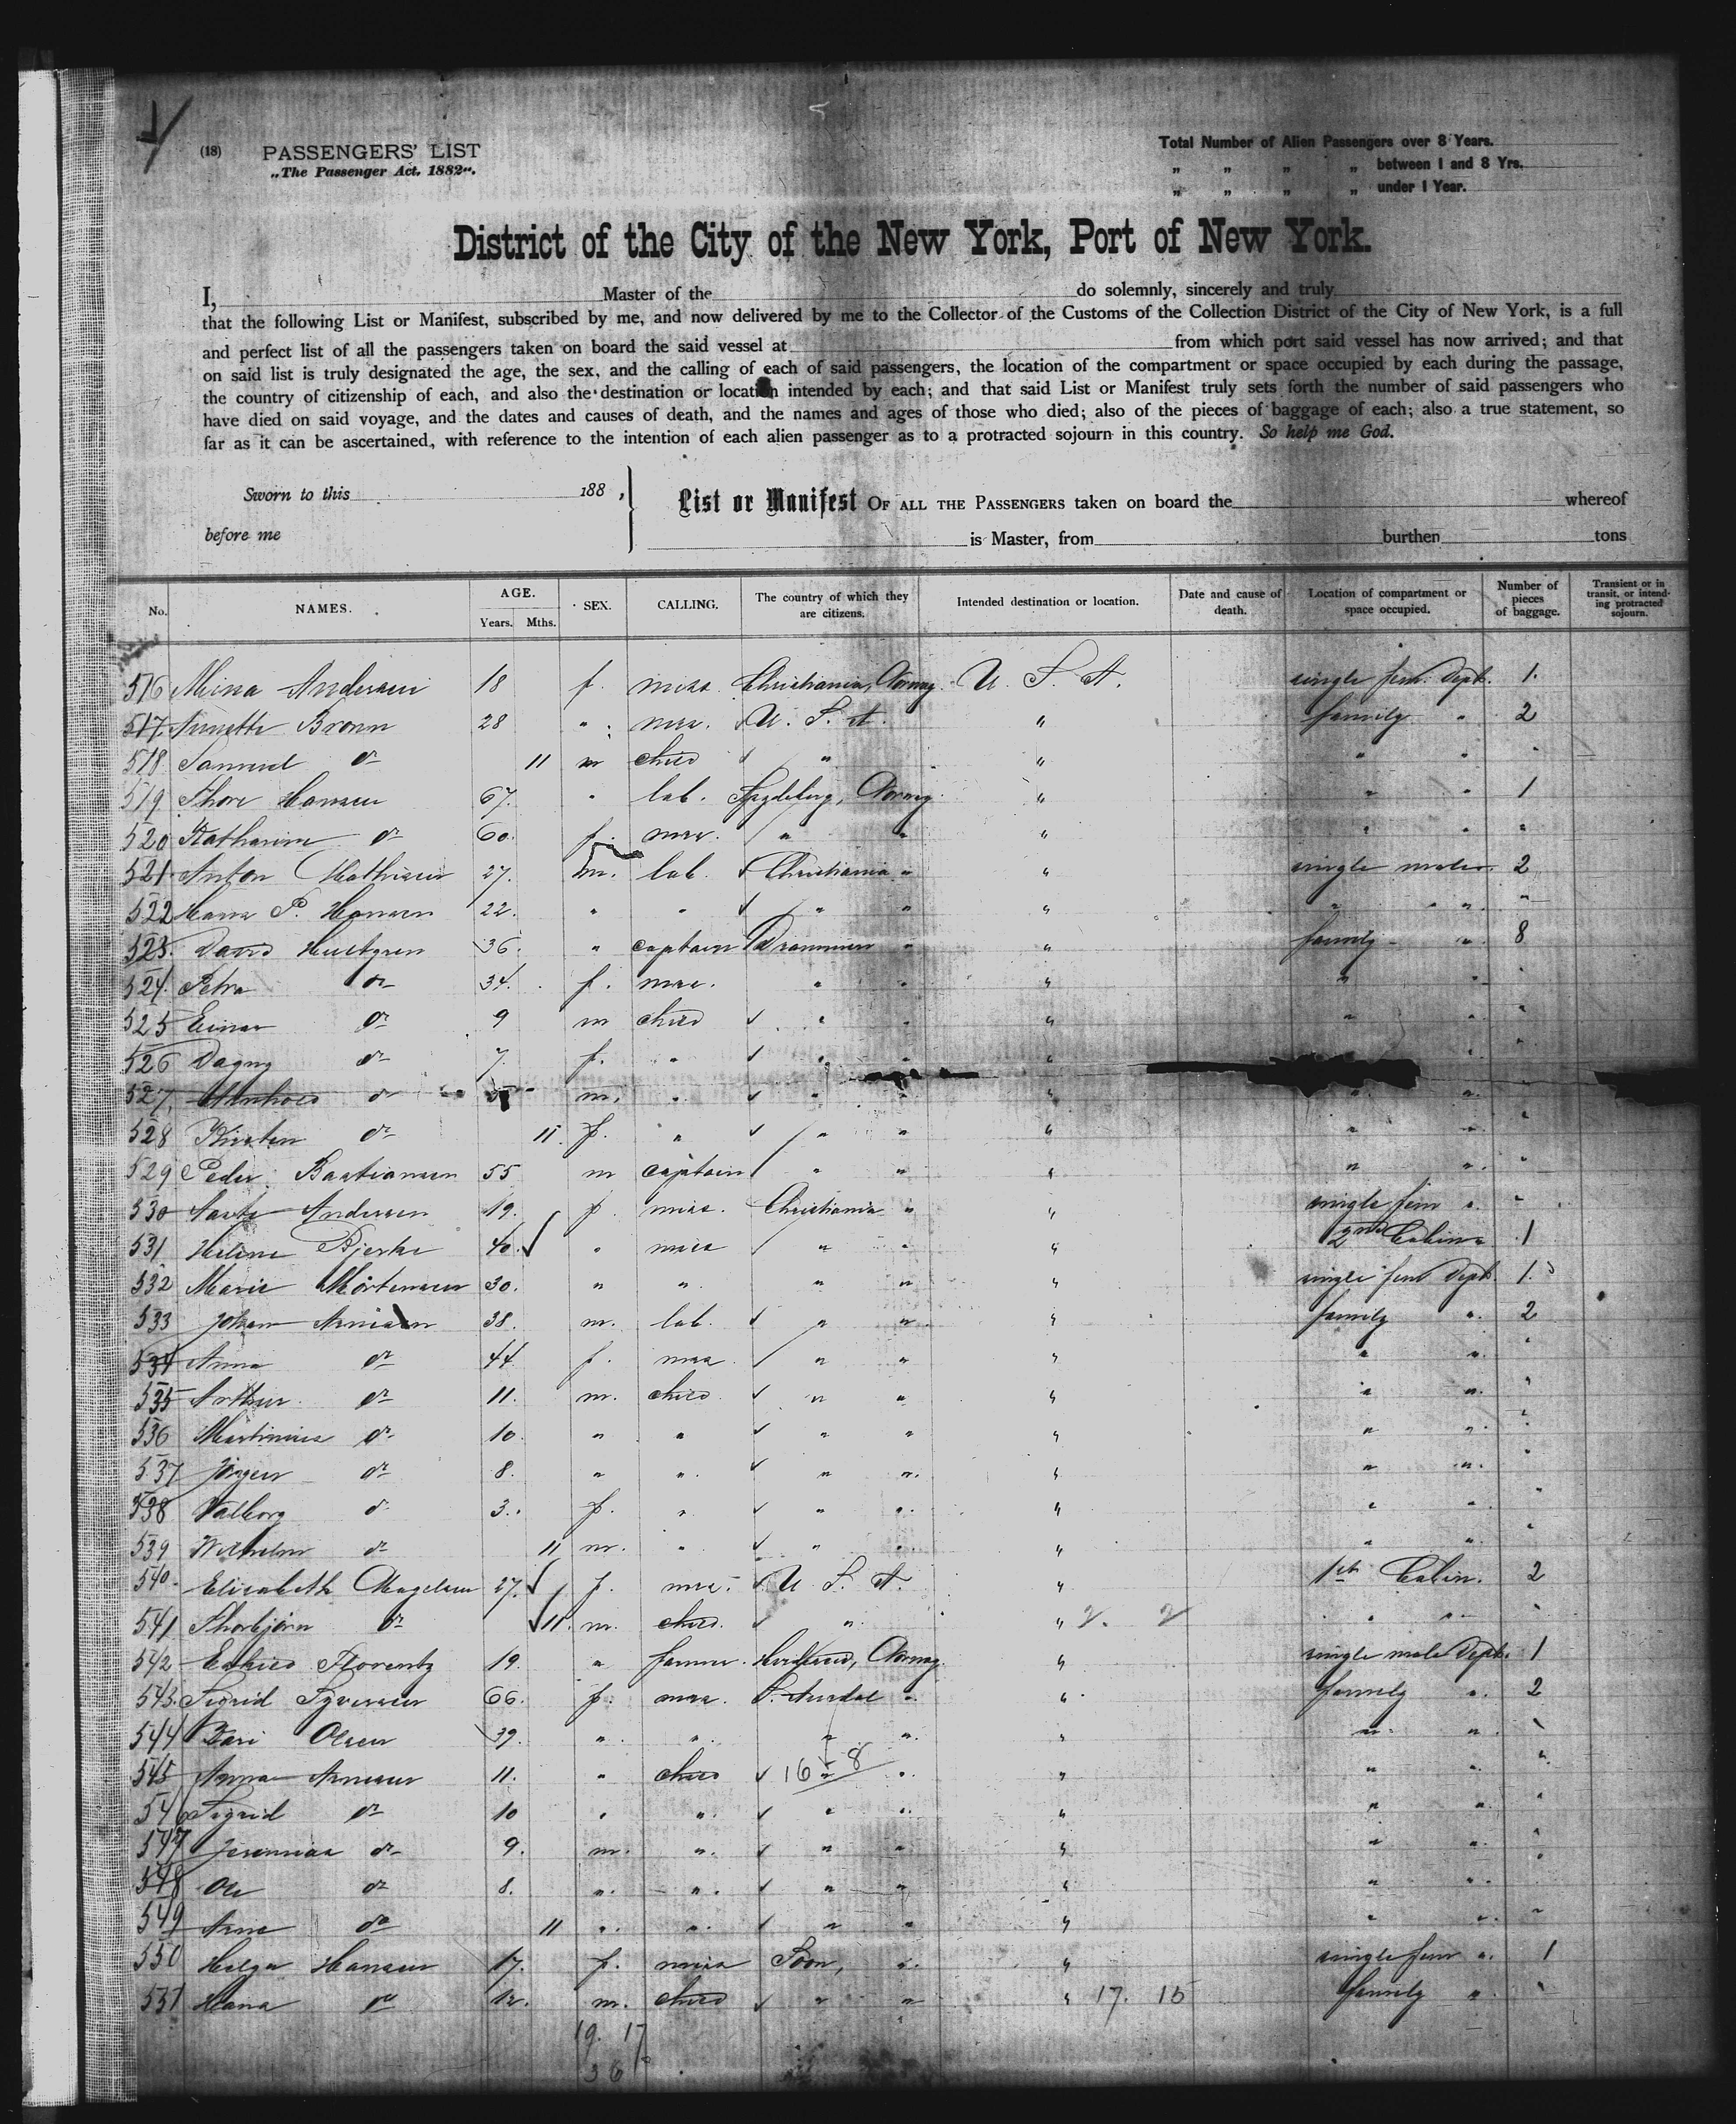 (18) PASSENGERS' LIST
„The Passenger Act, 1882“.
Total Number of Alien Passengers over 8 Years.
„ „ „ „ between 1 and 8 Yrs.
„ „ „ „ under 1 Year.
District of the City of the New York, Port of New York.
I, Master of the do solemnly, sincerely and truly
that the following List or Manifest, subscribed by me, and now delivered by me to the Collector of the Customs of the Collection District of the City of New York, is a full
and perfect list of all the passengers taken on board the said vessel at from which port said vessel has now arrived; and that
on said list is truly designated the age, the sex, and the calling of each of said passengers, the location of the compartment or space occupied by each during the passage,
the country of citizenship of each, and also the destination or location intended by each; and that said List or Manifest truly sets forth the number of said passengers who
have died on said voyage, and the dates and causes of death, and the names and ages of those who died; also of the pieces of baggage of each; also a true statement, so
far as it can be ascertained, with reference to the intention of each alien passenger as to a protracted sojourn in this country. So help me God.
Sworn to this 188 ,
before me
List or Manifest OF ALL THE PASSENGERS taken on board the whereof
is Master, from burthen tons
No. NAMES. AGE. Years. Mths. SEX. CALLING. The country of which they are citizens. Intended destination or location. Date and cause of death. Location of compartment or space occupied. Number of pieces of baggage. Transient or in transit, or intending protracted sojourn.
516 Mina Andersen 18 f. miss. Christiania, Norway. U. S. A. single fem. Dept. 1.
517. Brown 28 " mrs. U. S. A. " family " 2
518 Samuel do 11 m child " " " " "
519 Thore Hansen 67. " lab. Norway. " " " 1
520 Katharine do 60. f. mrs. " " " " " "
521. Anton Mathisen 27. m. lab. Christiania " " single males. 2
522 Hans P. Hansen 22. " " " " " " " "
523. David Hultgren 36. " captain Drammen " " family " 8
524. Petra do 34. f. mrs. " " " " "
525 Einar do 9 m child " " " " " "
526 Dagny do 7. f. " " " " " "
527. do m. " " " " " " "
528 Kirsten do 11. f. " " " " " " "
529 Peder Bastiansen 55 m captain " " " " " "
530 Andersen 19. f. miss. Christiania " " single fem " "
531 Helene Bjerke 40. " miss " " " 2nd Cabin 1
532 Marie Mortensen 30. " " " " " single fem Dept. 1.
533 Johan 38. m. lab. " " " family " 2
534 Anna do 44 f. mrs. " " " " " "
535 Arthur do 11. m. child " " " " " "
536 Martinius do 10. " " " " " " " "
537 Jörgen do 8. " " " " " " " "
538 Valborg do 3. f. " " " " " " "
539 Wilhelm do 11 m. " " " " " " "
540. Elisabeth Magelsen 27. f. mrs. U. S. A. " 1st Cabin. 2
541 Thorbjörn do 11. m. child. " " 2. 2 " " "
542 Florentz 19. " farmer. Norway. " single male Dept. 1
543. Sigrid Syversen 66. f. mrs. S. Aurdal " " family " 2
544 Kari Olsen 39. " " " " " " " "
545 Anna Arnesen 11. " child 16 8 " " " " "
546 Sigrid do 10 " " " " " " " "
547 Jeremias do 9. m. " " " " " " "
548 Ole do 8. " " " " " " " "
549 Arne do 11 " " " " " " " "
550 Helga Hansen 17. f. miss Soon, " " single fem " 1
551 Hans do 12. m. child " " " 17. 15 family " "
19. 17
36